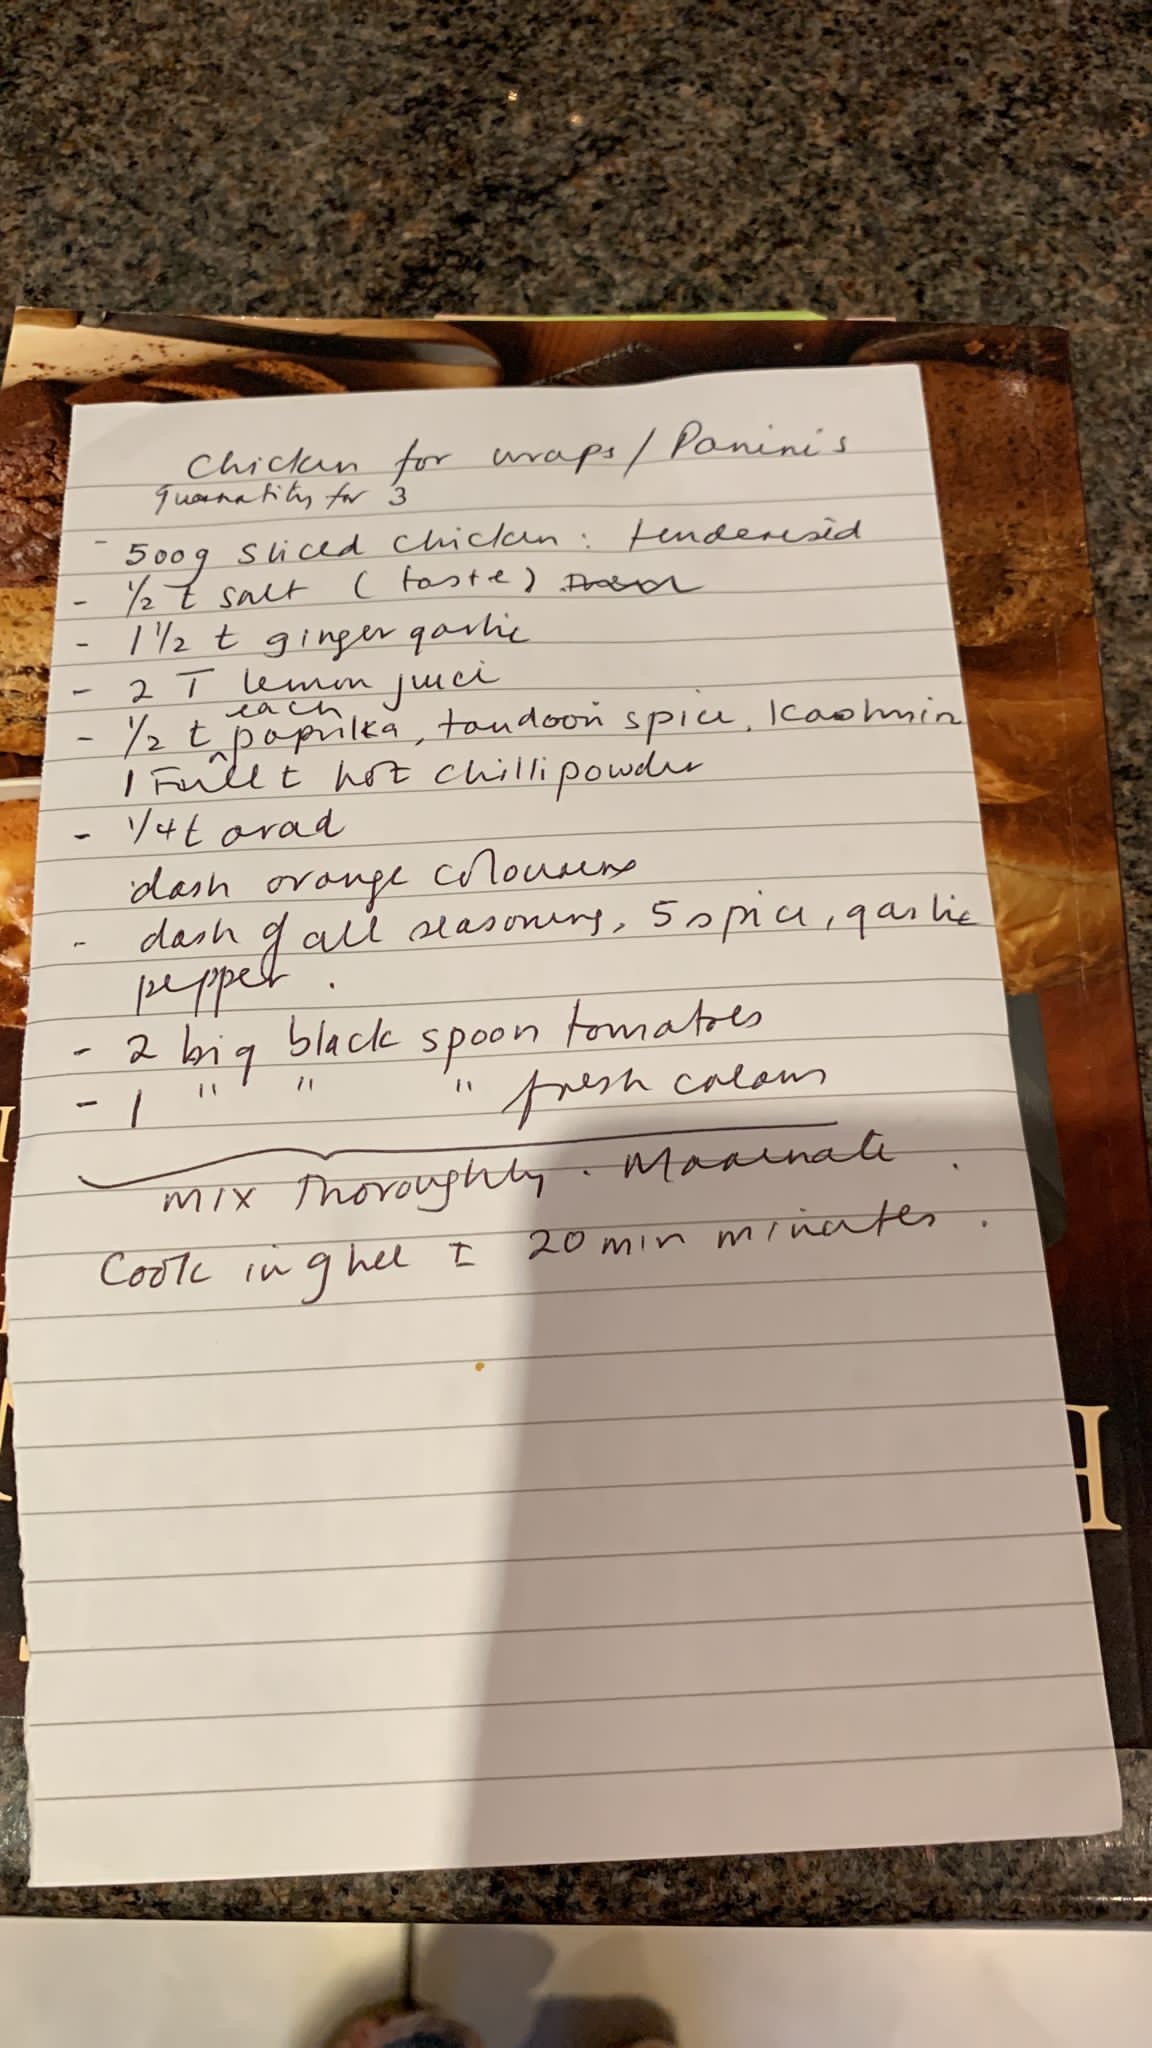 Chicken for wraps / Panini's
Quanatity for 3
- 500g sliced chicken : tenderised
- 1/2 t salt (taste)
- 1 1/2 t ginger garlic
- 2 T lemon juice
each
- 1/2 t ^ paprika, tandoori spice, Kashmiri
1 Full t hot chilli powder
- 1/4 t arad
dash orange colouring
- dash of all seasoning, 5 spice, garlic
pepper.
- 2 big black spoon tomatoes
- 1 " " " fresh cream
mix Thoroughly. Maarenate.
Cook in ghee ± 20 min minutes.
H